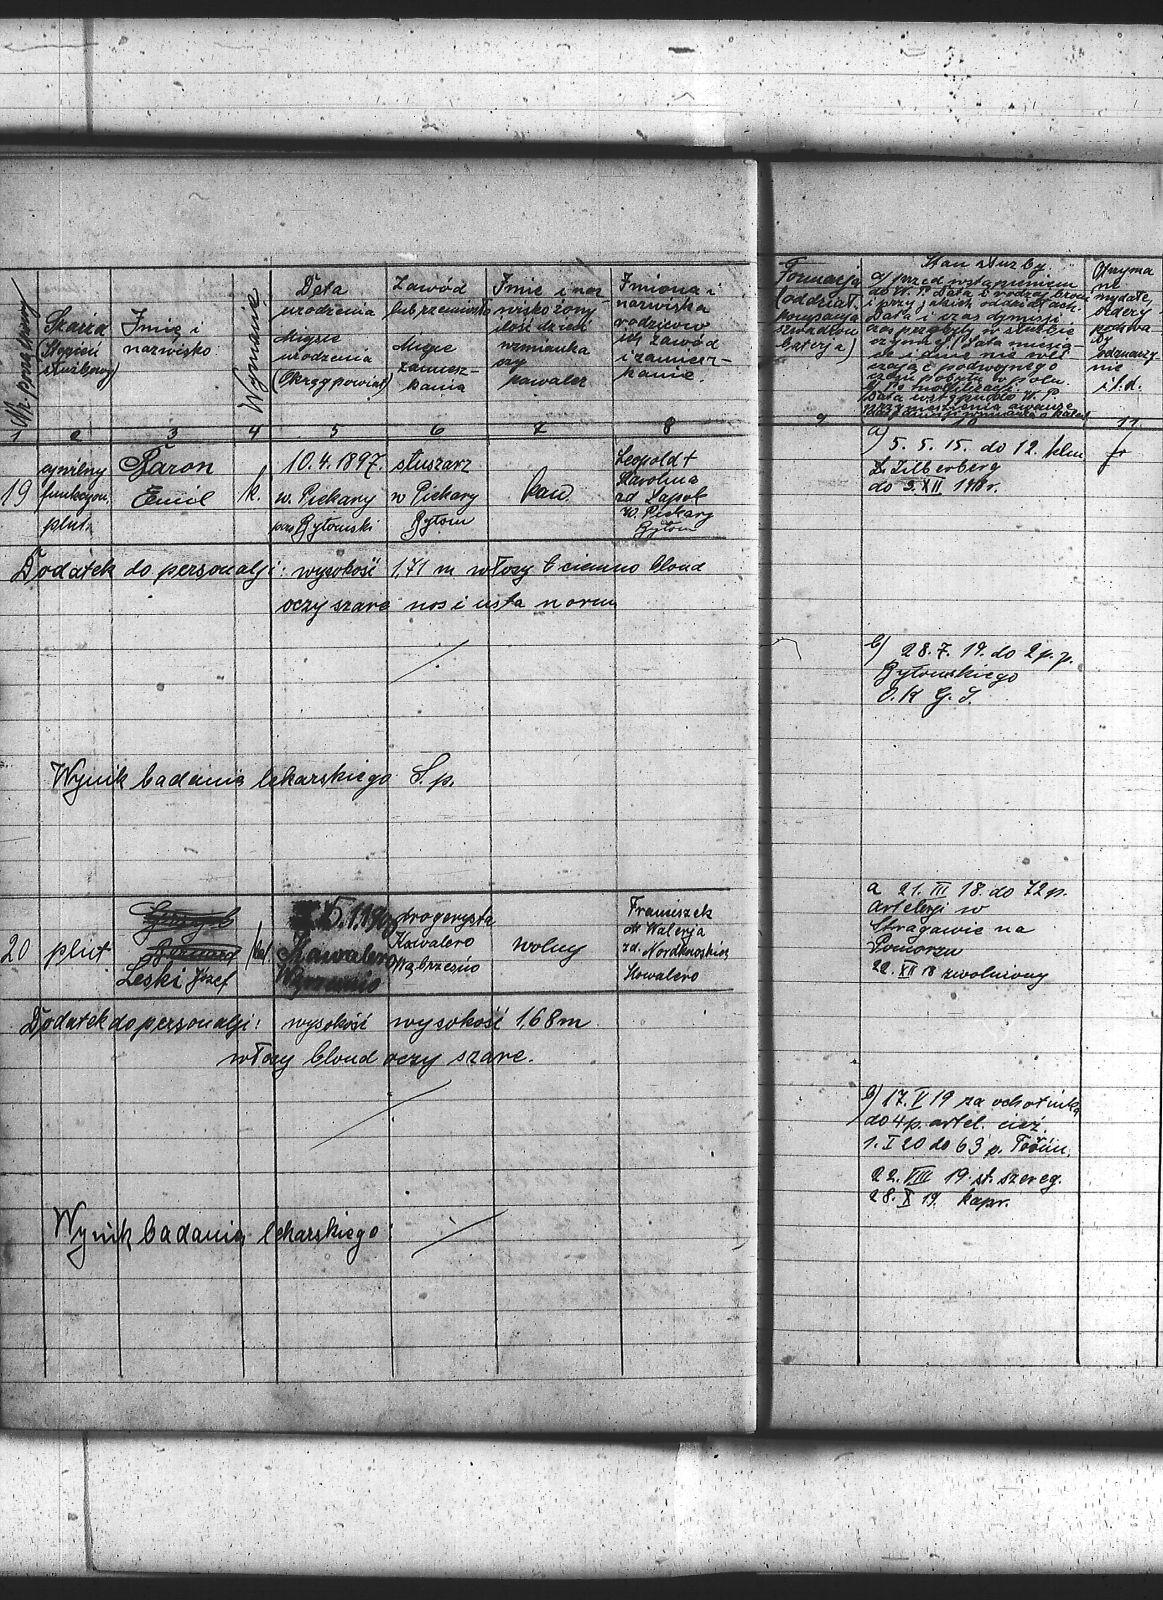 Nr. porządkowy
Szarża
Stopień
służbowy
Imię i
nazwisko
Wyznanie
Data
urodzenia
Miejsce
urodzenia
(Okręg powiat)
Zawód
lub rzemiosło
Miejsce
zamiesz-
kania
Imię i naz
wisko żony
ilość dzieci
wzmianka
czy
kawaler
Imiona i
nazwiska
rodziców
ich zawód
i zamiesz-
kanie.
Formacja
(oddział,
kompanja
szwadron
baterja)
Stan służby.
a) przed wstąpieniem
do W. P. Data i rodzaj broni
i przy jakich oddziałach.
Data i czas dymisji
czas przebyty w służbie
czynnej
Data wstąpu do W. P.
Otrzyma
ne
medale,
ordery
odznacze
nie
i t. d.
1 2 3 4 5 6 7 8 9 10 11
19
czynny
funkcyon.
plut.
Baron
Emil
k.
10. 4. 1897.
w. Piekary
pow Bytomski
słuszarz
w Piekary
Bytom
kaw
Leopold +
Karolina
zd
w. Piekary
Bytom
a) 5. 5. 15. do 12.
Zilberberg
do 3. XII 1918r.
Dodatek do personalji: wysokość 1,71 m włosy ciemno blond
oczy szare nos i usta norm
b) 28. 7. 19. do 2 p. p.
Bytomskiego
Wynik badania lekarskiego S. p.
20
plut
Leski Józef
Kat
5. 1. 1903
Kawalero
drogerysta
Kowalero
Wąbrzeźno
wolny
Franciszek
Walerja
zd.
Kowalero
a 21. III 18. do 72 p.
artelerji w
na
Pomorzu
22. XII 18 zwolniony
Dodatek do personalji: wysokość wysokość 1,68 m
włosy blond oczy szare.
b) 17. V 19 za ochotnika
do 4 p. artel. cięż.
1. I 20 do 63 p. Toruń.
22. VIII 19. st. szereg.
28. X 19. kapr.
Wynik badania lekarskiego: